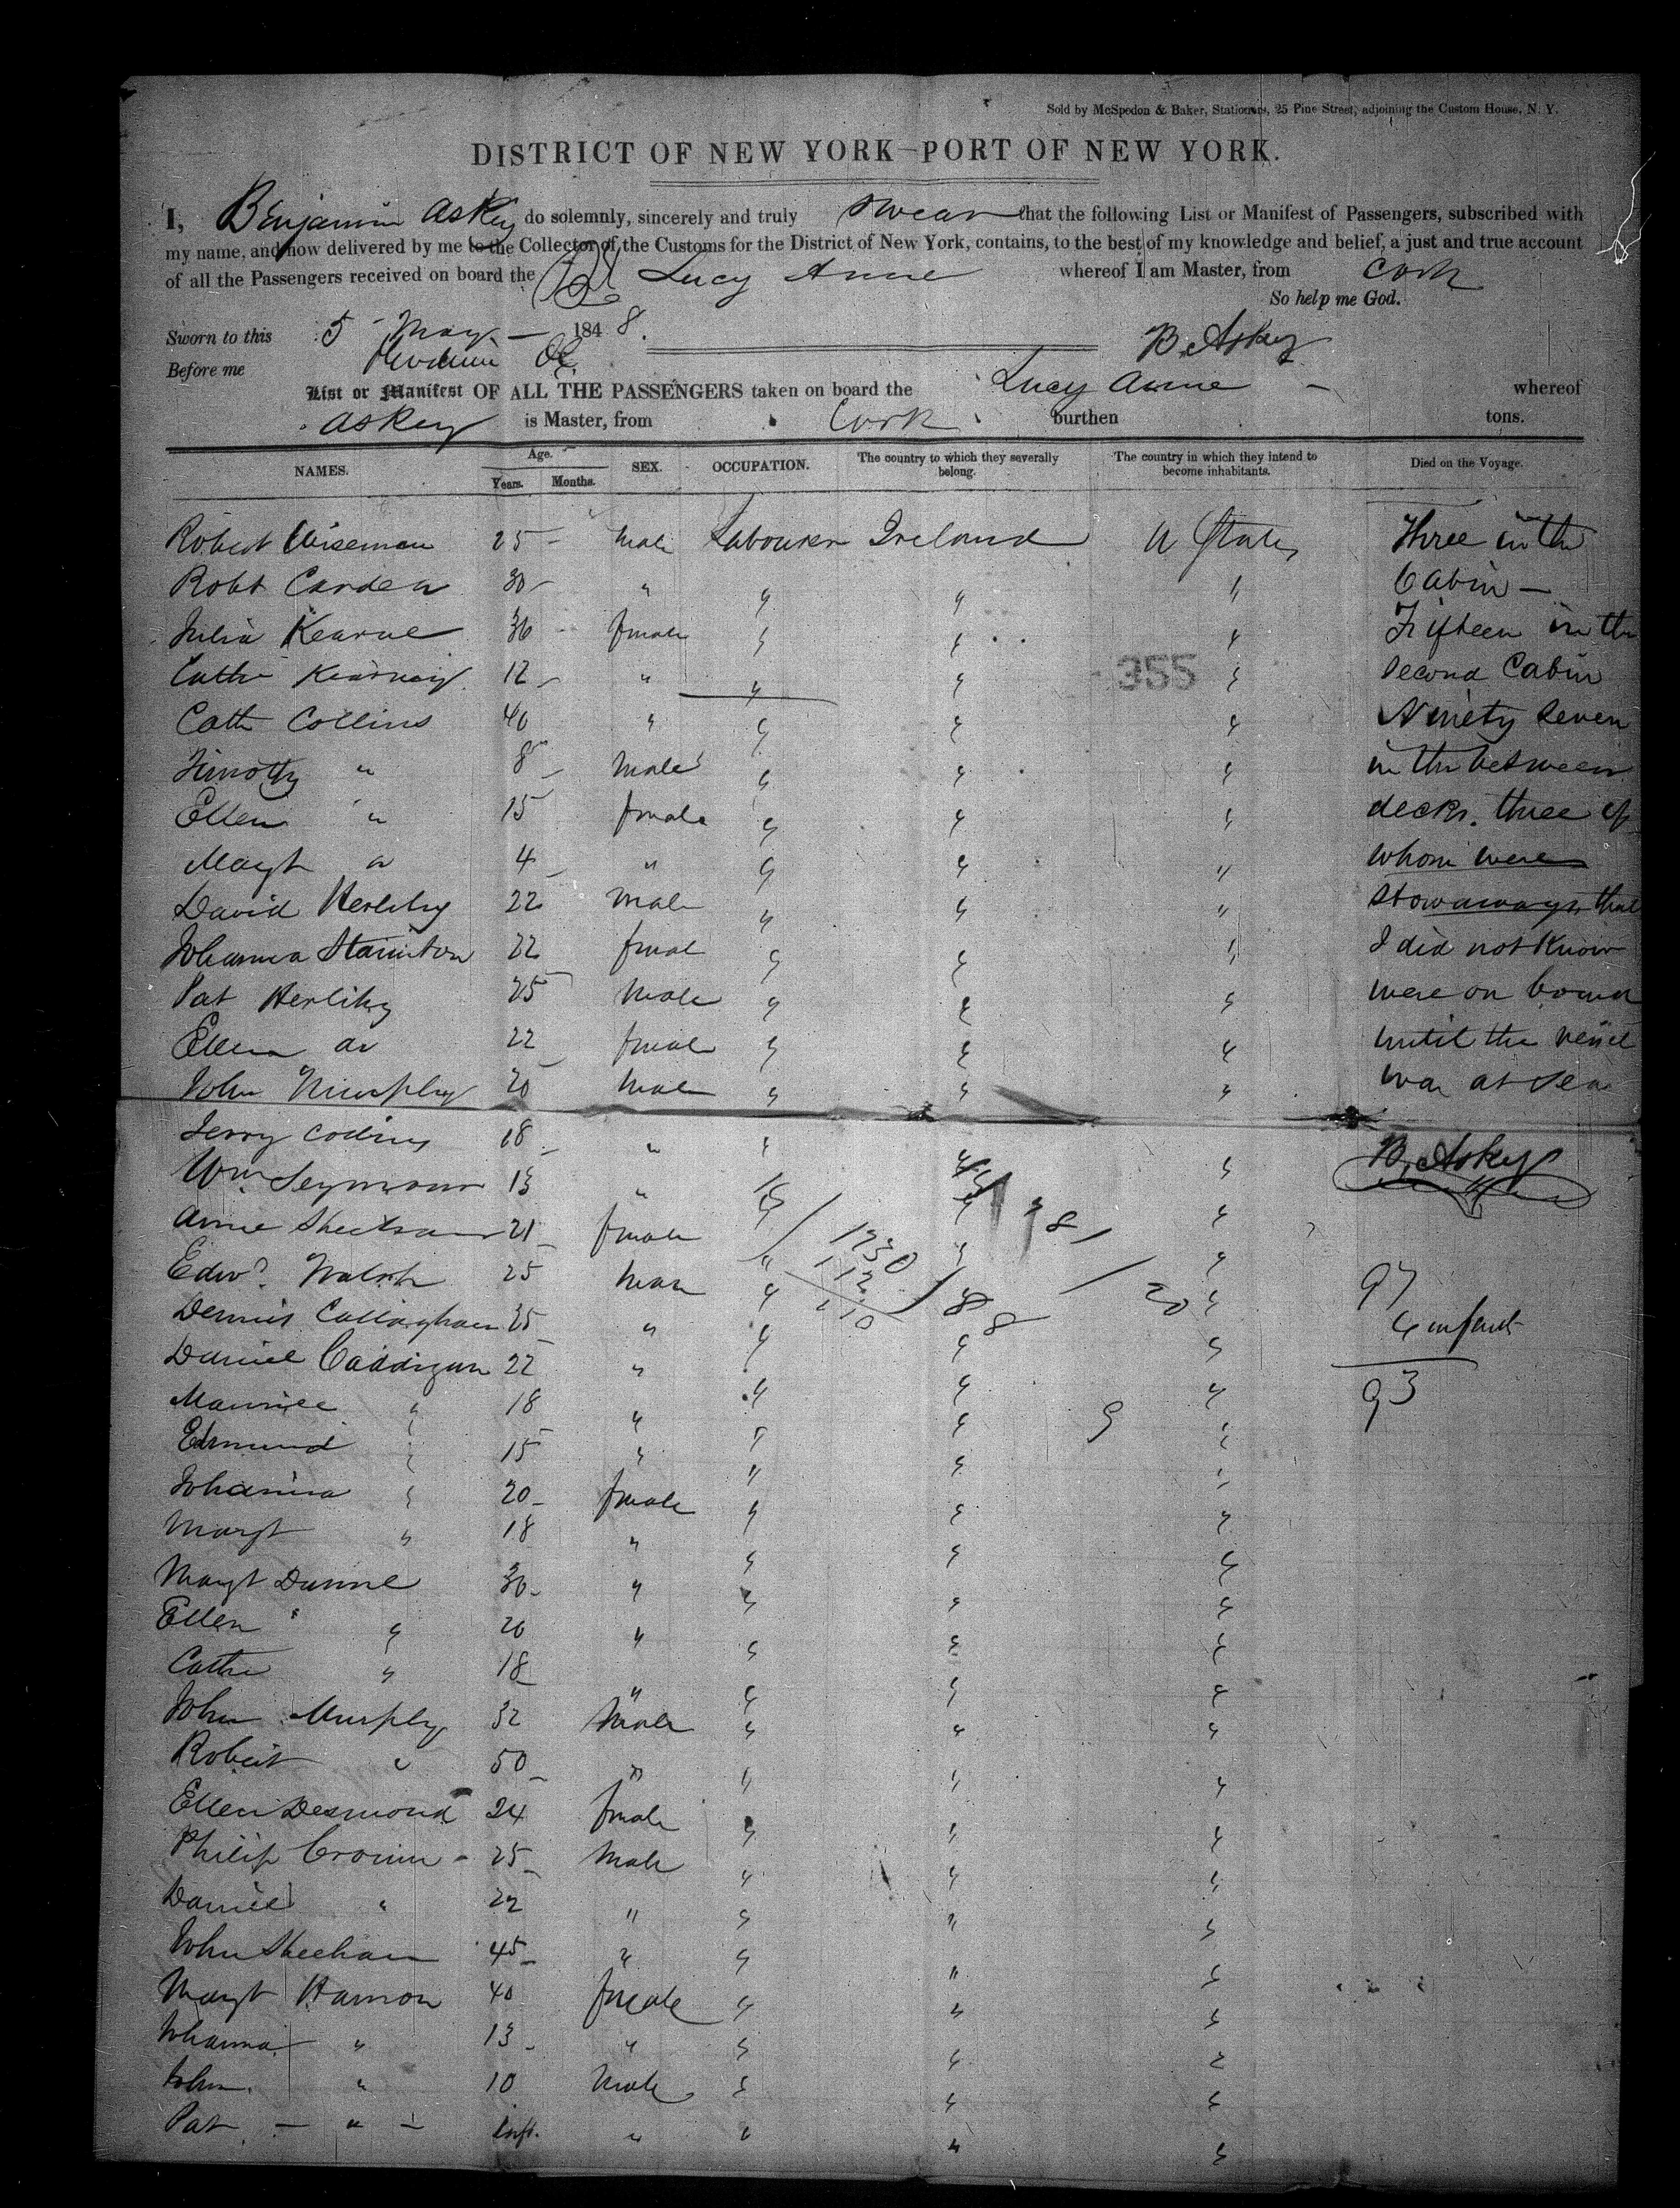 Sold by McSpedon & Baker, Stationers, 25 Pine Street, adjoining the Custom House, N. Y.
DISTRICT OF NEW YORK—PORT OF NEW YORK.
I, Benjamin Askey do solemnly, sincerely and truly swear that the following List or Manifest of Passengers, subscribed with
my name, and now delivered by me to the Collector of the Customs for the District of New York, contains, to the best of my knowledge and belief, a just and true account
of all the Passengers received on board the Lucy Anne whereof I am Master, from Cork
So help me God.
Sworn to this 5 May 1848.
B. Askey
Before me
List or Manifest OF ALL THE PASSENGERS taken on board the Lucy Anne whereof
Askey is Master, from Cork burthen tons.
NAMES. Age. Years. Months. SEX. OCCUPATION. The country to which they severally belong. The country in which they intend to become inhabitants. Died on the Voyage.
Robert Wiseman 25 Male Labourer Ireland U States Three in the
Robt Carden 30 " " " " Cabin —
Julia Kearne 36 female " " " Fifteen in the
Cathe Kearney 12 " " " 355 " Second Cabin
Cath Collins 40 " " " " Ninety Seven
Timothy " 8 Male " " " in the between
Ellen " 15 female " " " decks. three of
Margt " 4 " " " " whom were
David Herlihy 22 Male " " " stowaways, that
Johanna Stainton 22 female " " " I did not know
Pat Herlihy 25 Male " " " were on board
Ellen do 22 female " " " until the vessel
John Murphy 20 Male " " " was at Sea
Jerry " " " "
B. Askey
Wm Seymour 13 " " " "
Anne 21 female " " "
Edwd. Walsh 25 Male " " " 97
Dennis Callaghan 25 " " " " 4 infants
Daniel Caddigan 22 " " " "
Maurice " 18 " " " " 93
Edmund " 15 " " " "
Johanna " 20 female " " "
Margt " 18 " " " "
Margt Dunne 30 " " " "
Ellen " 20 " " " "
Cathe " 18 " " " "
John Murphy 32 Male " " "
Robert " 50 " " " "
Ellen Desmond 24 female " " "
Philip Cronin 25 Male " " "
Daniel " 22 " " " "
John Sheehan 45 " " " "
Margt Hannon 40 female " " "
Johanna " 13 " " " "
John " 10 Male " " "
Pat — " — Inft. " " " "